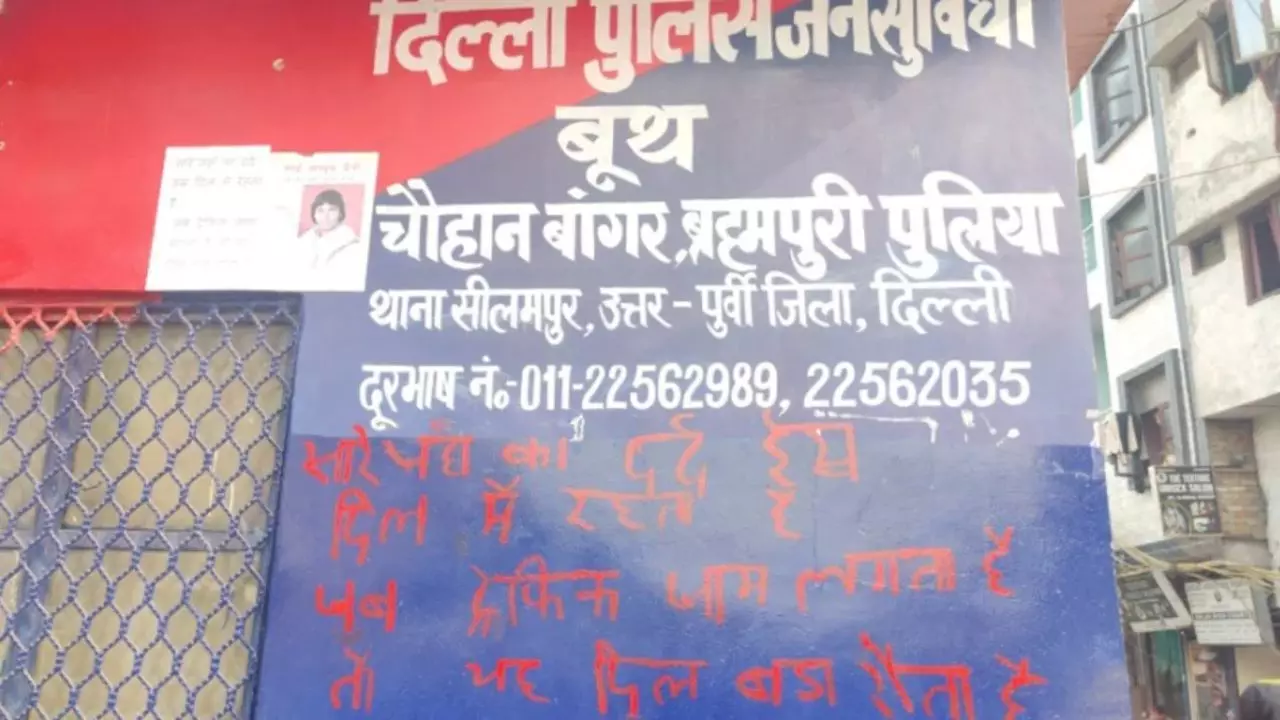 दिल्ली पुलिस जनसुविधा
बूथ
चौहान बांगर, ब्रह्मपुरी पुलिया
थाना सीलमपुर, उत्तर-पुर्वी जिला, दिल्ली
दूरभाष नं०-011-22562989, 22562035
सारे का दर्द
दिल में रहता है
जब ट्रेफिक जाम लगता है
तों यह दिल बडा रौता है